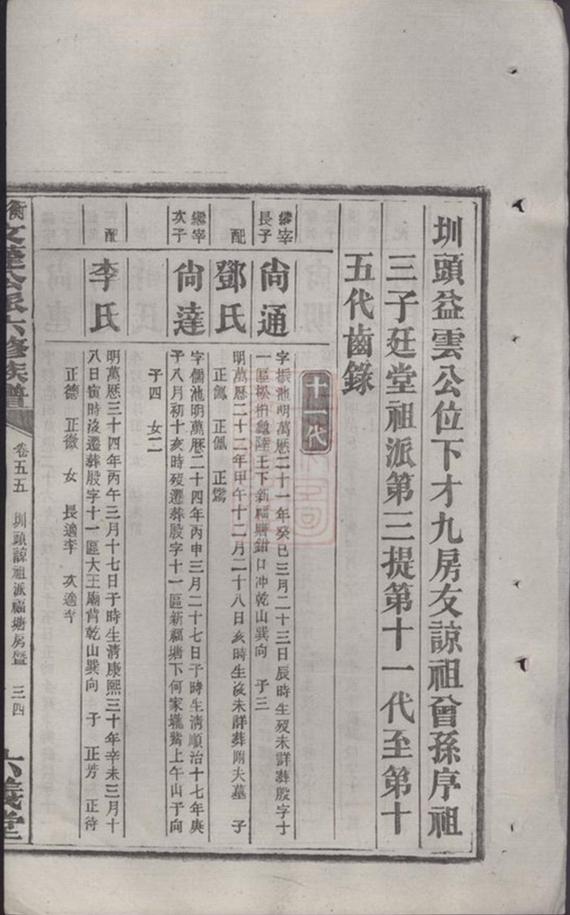 圳頭益雲公位下才九房友諒祖曾孫序祖
三子廷堂祖派第三提第十一代至第十
五代齒錄
十一代
繼宰
長子
尙通
字振池明萬厯二十一年癸巳三月二十三日辰時生歿未詳葬殷字十
一區 陸王下新福塘 口冲乾山巽向 子三
配
鄧氏
明萬厯二十二年甲午十二月二十八日亥時生歿未詳葬附夫墓 子
正佩 正
繼宰
次子
尙達
字儒池明萬厯二十四年丙申三月二十七日子時生清順治十七年庚
子八月初十亥時歿遷葬殷字十一區新福塘下何家壠 上午山子向
子四 女二
配
李氏
明萬厯三十四年丙午三月十七日子時生清康熙三十年辛未三月十
八日寅時歿遷葬殷字十一區大王廟背乾山巽向 子 正芳 正待
正德 正微 女 長適李 次適
衡 公派六修族譜
卷五五 圳頭諒祖派福塘房 三四
六義堂